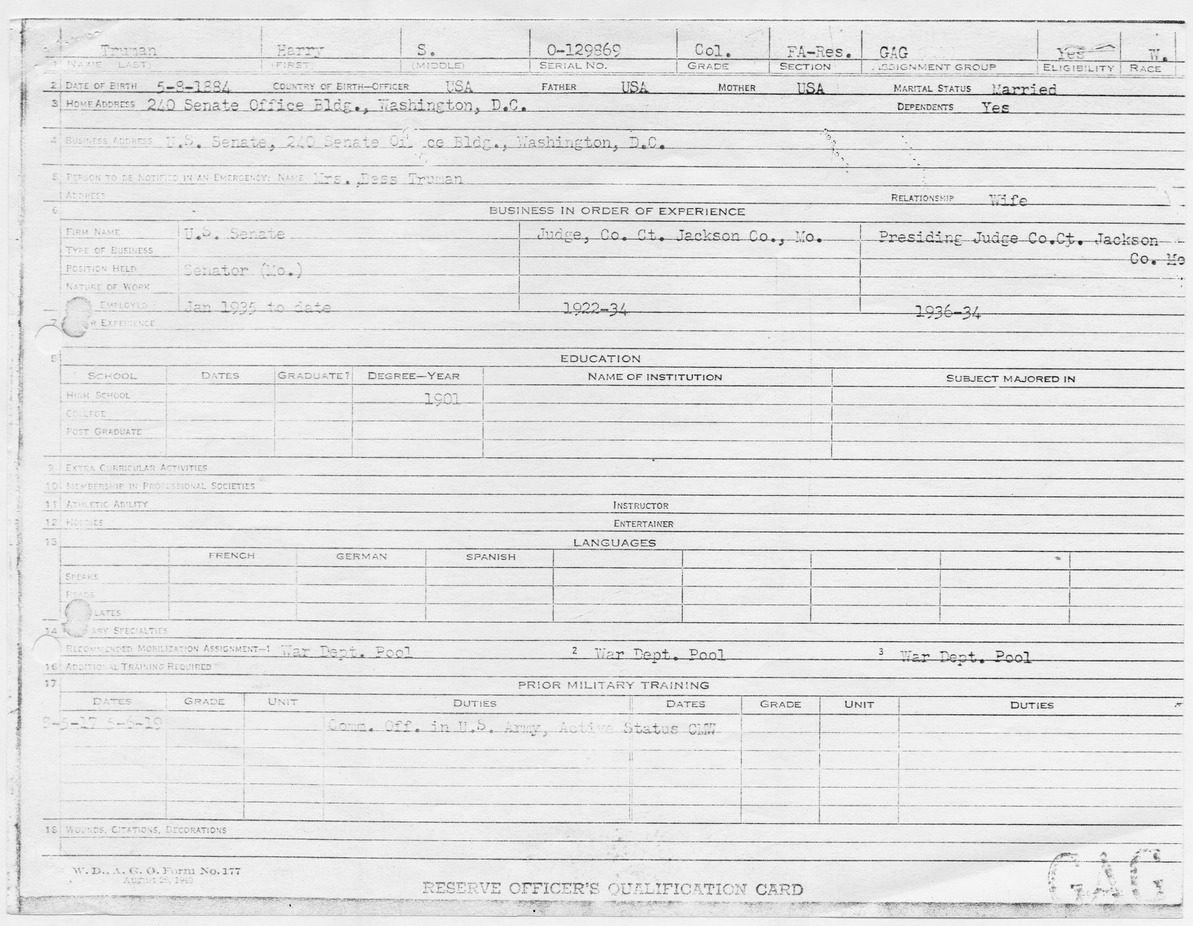 Truman Harry S. O-129869 Col. FA-Res. GAG Yes W.
1 NAME (LAST) (FIRST) (MIDDLE) SERIAL NO. GRADE SECTION ASSIGNMENT GROUP ELIGIBILITY RACE
2 DATE OF BIRTH 5-8-1884 COUNTRY OF BIRTH—OFFICER USA FATHER USA MOTHER USA MARITAL STATUS Married
3 HOME ADDRESS 240 Senate Office Bldg., Washington, D.C. DEPENDENTS Yes
4 BUSINESS ADDRESS U.S. Senate, 240 Senate Of ce Bldg., Washington, D.C.
5 PERSON TO BE NOTIFIED IN AN EMERGENCY: NAME Mrs. Bess Truman
ADDRESS RELATIONSHIP Wife
6 BUSINESS IN ORDER OF EXPERIENCE
FIRM NAME U.S. Senate Judge, Co. Ct. Jackson Co., Mo. Presiding Judge Co.Ct. Jackson
TYPE OF BUSINESS Co. Mo
POSITION HELD Senator (Mo.)
NATURE OF WORK
EMPLOYED Jan 1935 to date 1922-34 1936-34
7 EXPERIENCE
8 EDUCATION
SCHOOL DATES GRADUATE? DEGREE—YEAR NAME OF INSTITUTION SUBJECT MAJORED IN
HIGH SCHOOL 1901
COLLEGE
POST GRADUATE
9 EXTRA CURRICULAR ACTIVITIES
10 MEMBERSHIP IN PROFESSIONAL SOCIETIES
11 ATHLETIC ABILITY INSTRUCTOR
12 HOBBIES ENTERTAINER
13 LANGUAGES
FRENCH GERMAN SPANISH
SPEAKS
READS
LATES
14 ARY SPECIALTIES
RECOMMENDED MOBILIZATION ASSIGNMENT—1 War Dept. Pool 2 War Dept. Pool 3 War Dept. Pool
16 ADDITIONAL TRAINING REQUIRED
17 PRIOR MILITARY TRAINING
DATES GRADE UNIT DUTIES DATES GRADE UNIT DUTIES
8-5-17 5-6-19 Comm. Off. in U.S. Army, Active Status CMW
18 WOUNDS, CITATIONS, DECORATIONS
W. D., A. G. O. Form No. 177
RESERVE OFFICER'S QUALIFICATION CARD
GAG